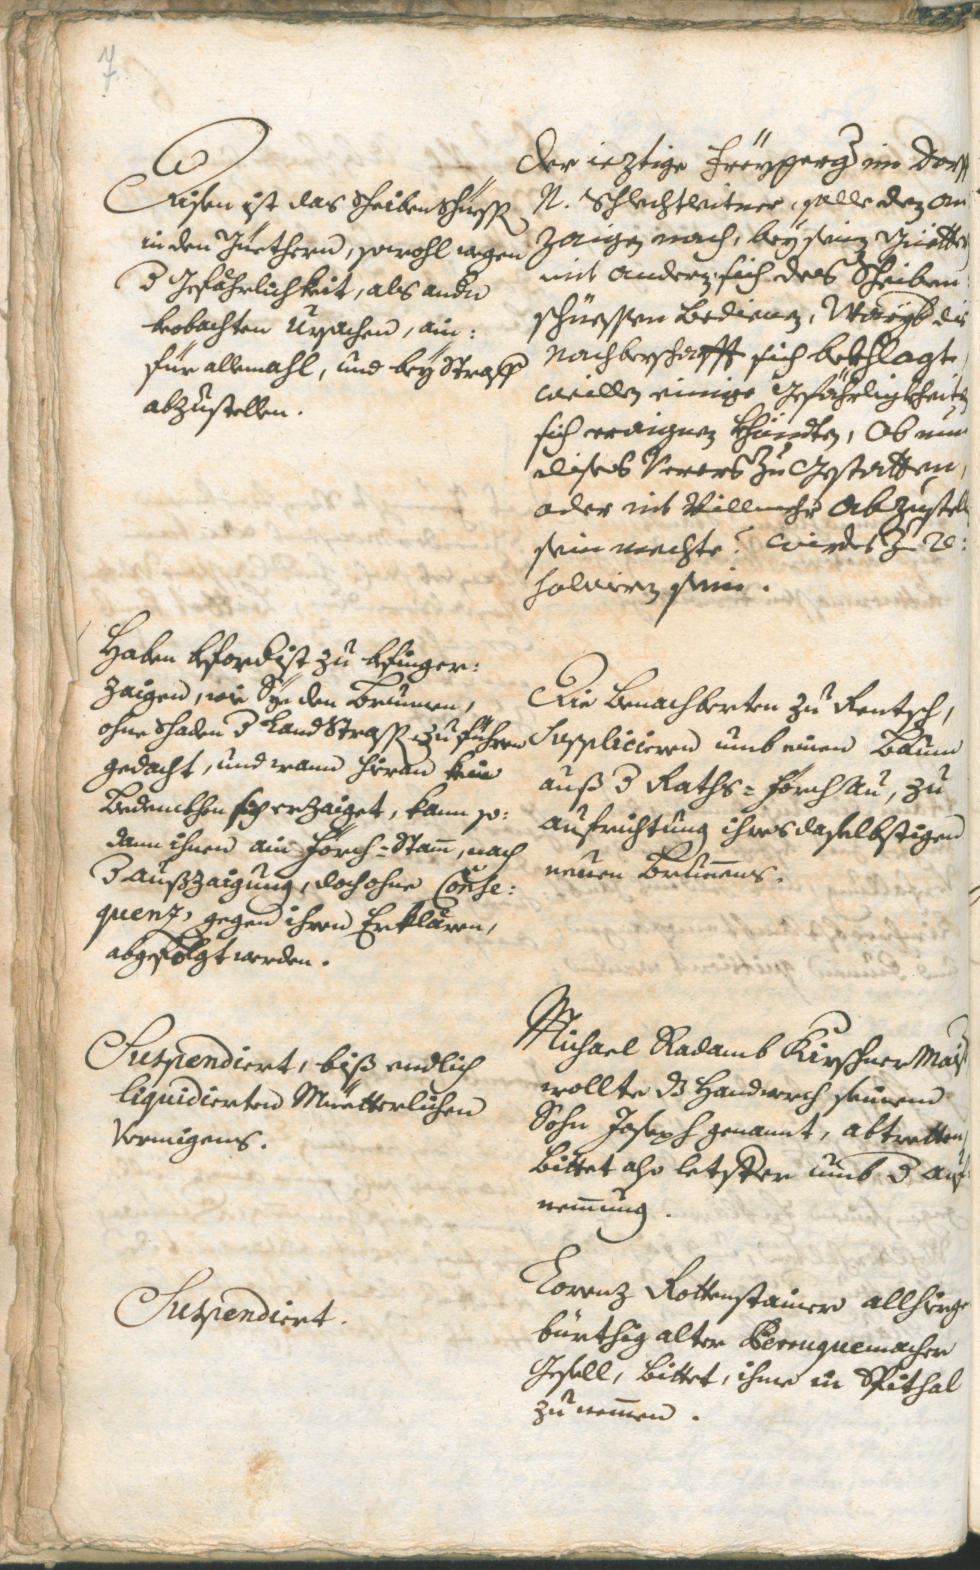 7.
Disen ist das Scheibenschüess
in den Güethern, sowohl wegen
d Gefährlichkeit, als andn
beobachten Ursachen, ain:
für allemahl, und bey Straff
abzustellen.
Der ieztige Freysperg im Dorff
N. Schlechtleitner, solle dem an
zaigen nach, bey seinen Güetter
mit andern sich des Scheiben
schüessen bedienen, die
nachberschafft sich bekhlagt
weillen einige Gefährligkheit
sich eraignen khundten, Ob nun
dises zu Gestatten,
oder nit Villmehr abzustell
sein mechte? wirdet zu re:
solvieren sein.
Haben bevordist zu befinger:
zaigen, wie Sye den Brunnen,
ohne Schaden d Landstrass zu führen
gedacht, und wann hieran kein
Bedenckhen sich erzaiget, kann so:
dann ihnen ain Förch-Stam, nach
d Außzaigung, doch ohne Conse:
quenz, gegen ihren Erklären,
abgefolgt werden.
Die Benachberten zu Rentsch,
Supplicieren umb einen Baum
auß d Raths-Förch Au, zu
aufrichtung ihres daselbstigen
neuen Brunens.
Suspendiert, biß endlich
liquidierten Müetterlichen
Vermigens.
Michael Radamb Kirschner Maist
wollte ds Handwerch seinem
Sohn Joseph genannt, abtretten,
Bittet also letster umb d auf
nemung.
Suspendiert.
Lorenz Rottenstainer allhirge
bürthig alter Perouquemacher
Gesell, bittet, ihme in Spithal
zu nemen.